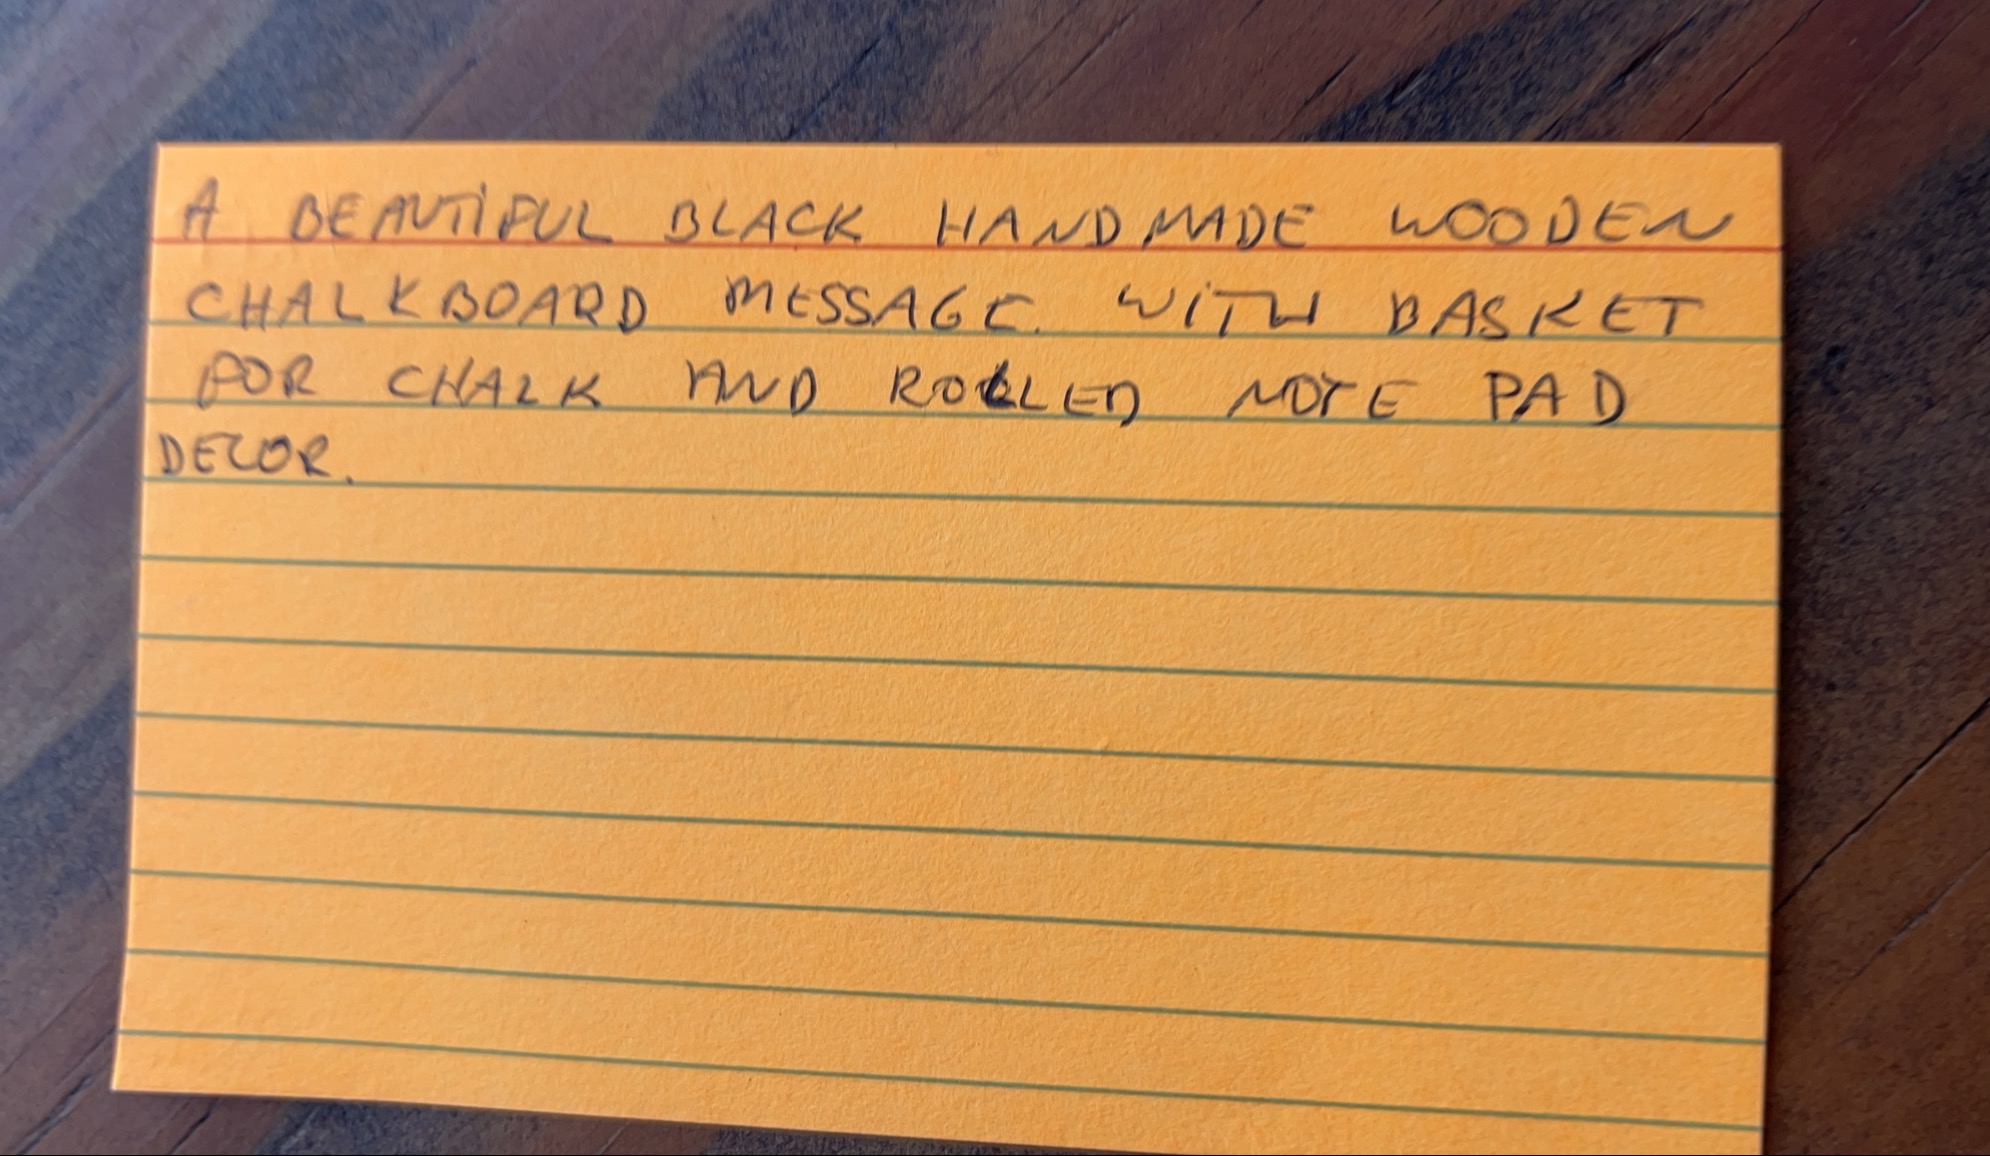 A BEAUTIFUL BLACK HANDMADE WOODEN
CHALKBOARD MESSAGE. WITH BASKET
FOR CHALK AND ROLLED NOTE PAD
DECOR.